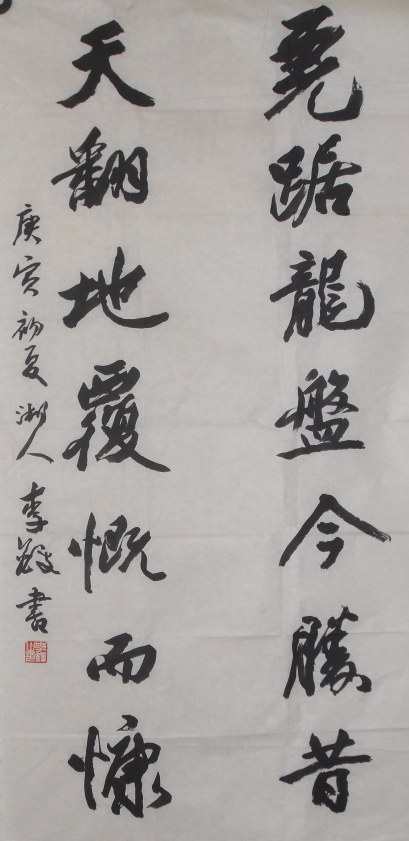 虎踞龍盤今勝昔
天翻地覆慨而慷
庚寅初夏湖人李毅書